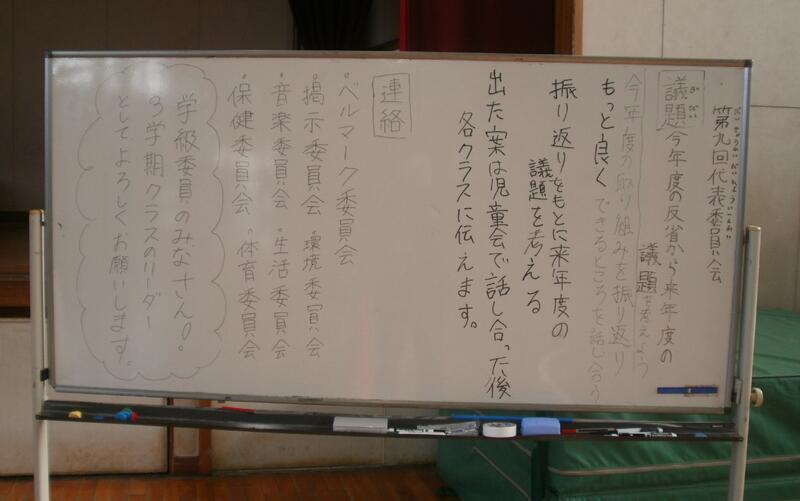 第九回代表委員会
議題 今年度の反省から来年度の
議題を考えよう
今年度の取り組みを振り返り
もっと良くできるところを話し合う
振り返りをもとに来年度の
議題を考える
出た案は児童会で話し合った後
各クラスに伝えます。
連絡
・ベルマーク委員会
・掲示委員会 ・環境委員会
・音楽委員会 ・生活委員会
・保健委員会 ・体育委員会
学級委員のみなさん!
3学期クラスのリーダー
としてよろしくお願いします。